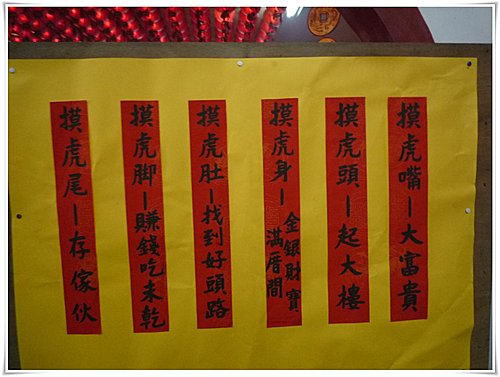 摸虎嘴－大富貴
摸虎頭－起大樓
摸虎身－金銀財寶
滿厝間
摸虎肚－找到好頭路
摸虎脚－賺錢吃未乾
摸虎尾－存傢伙